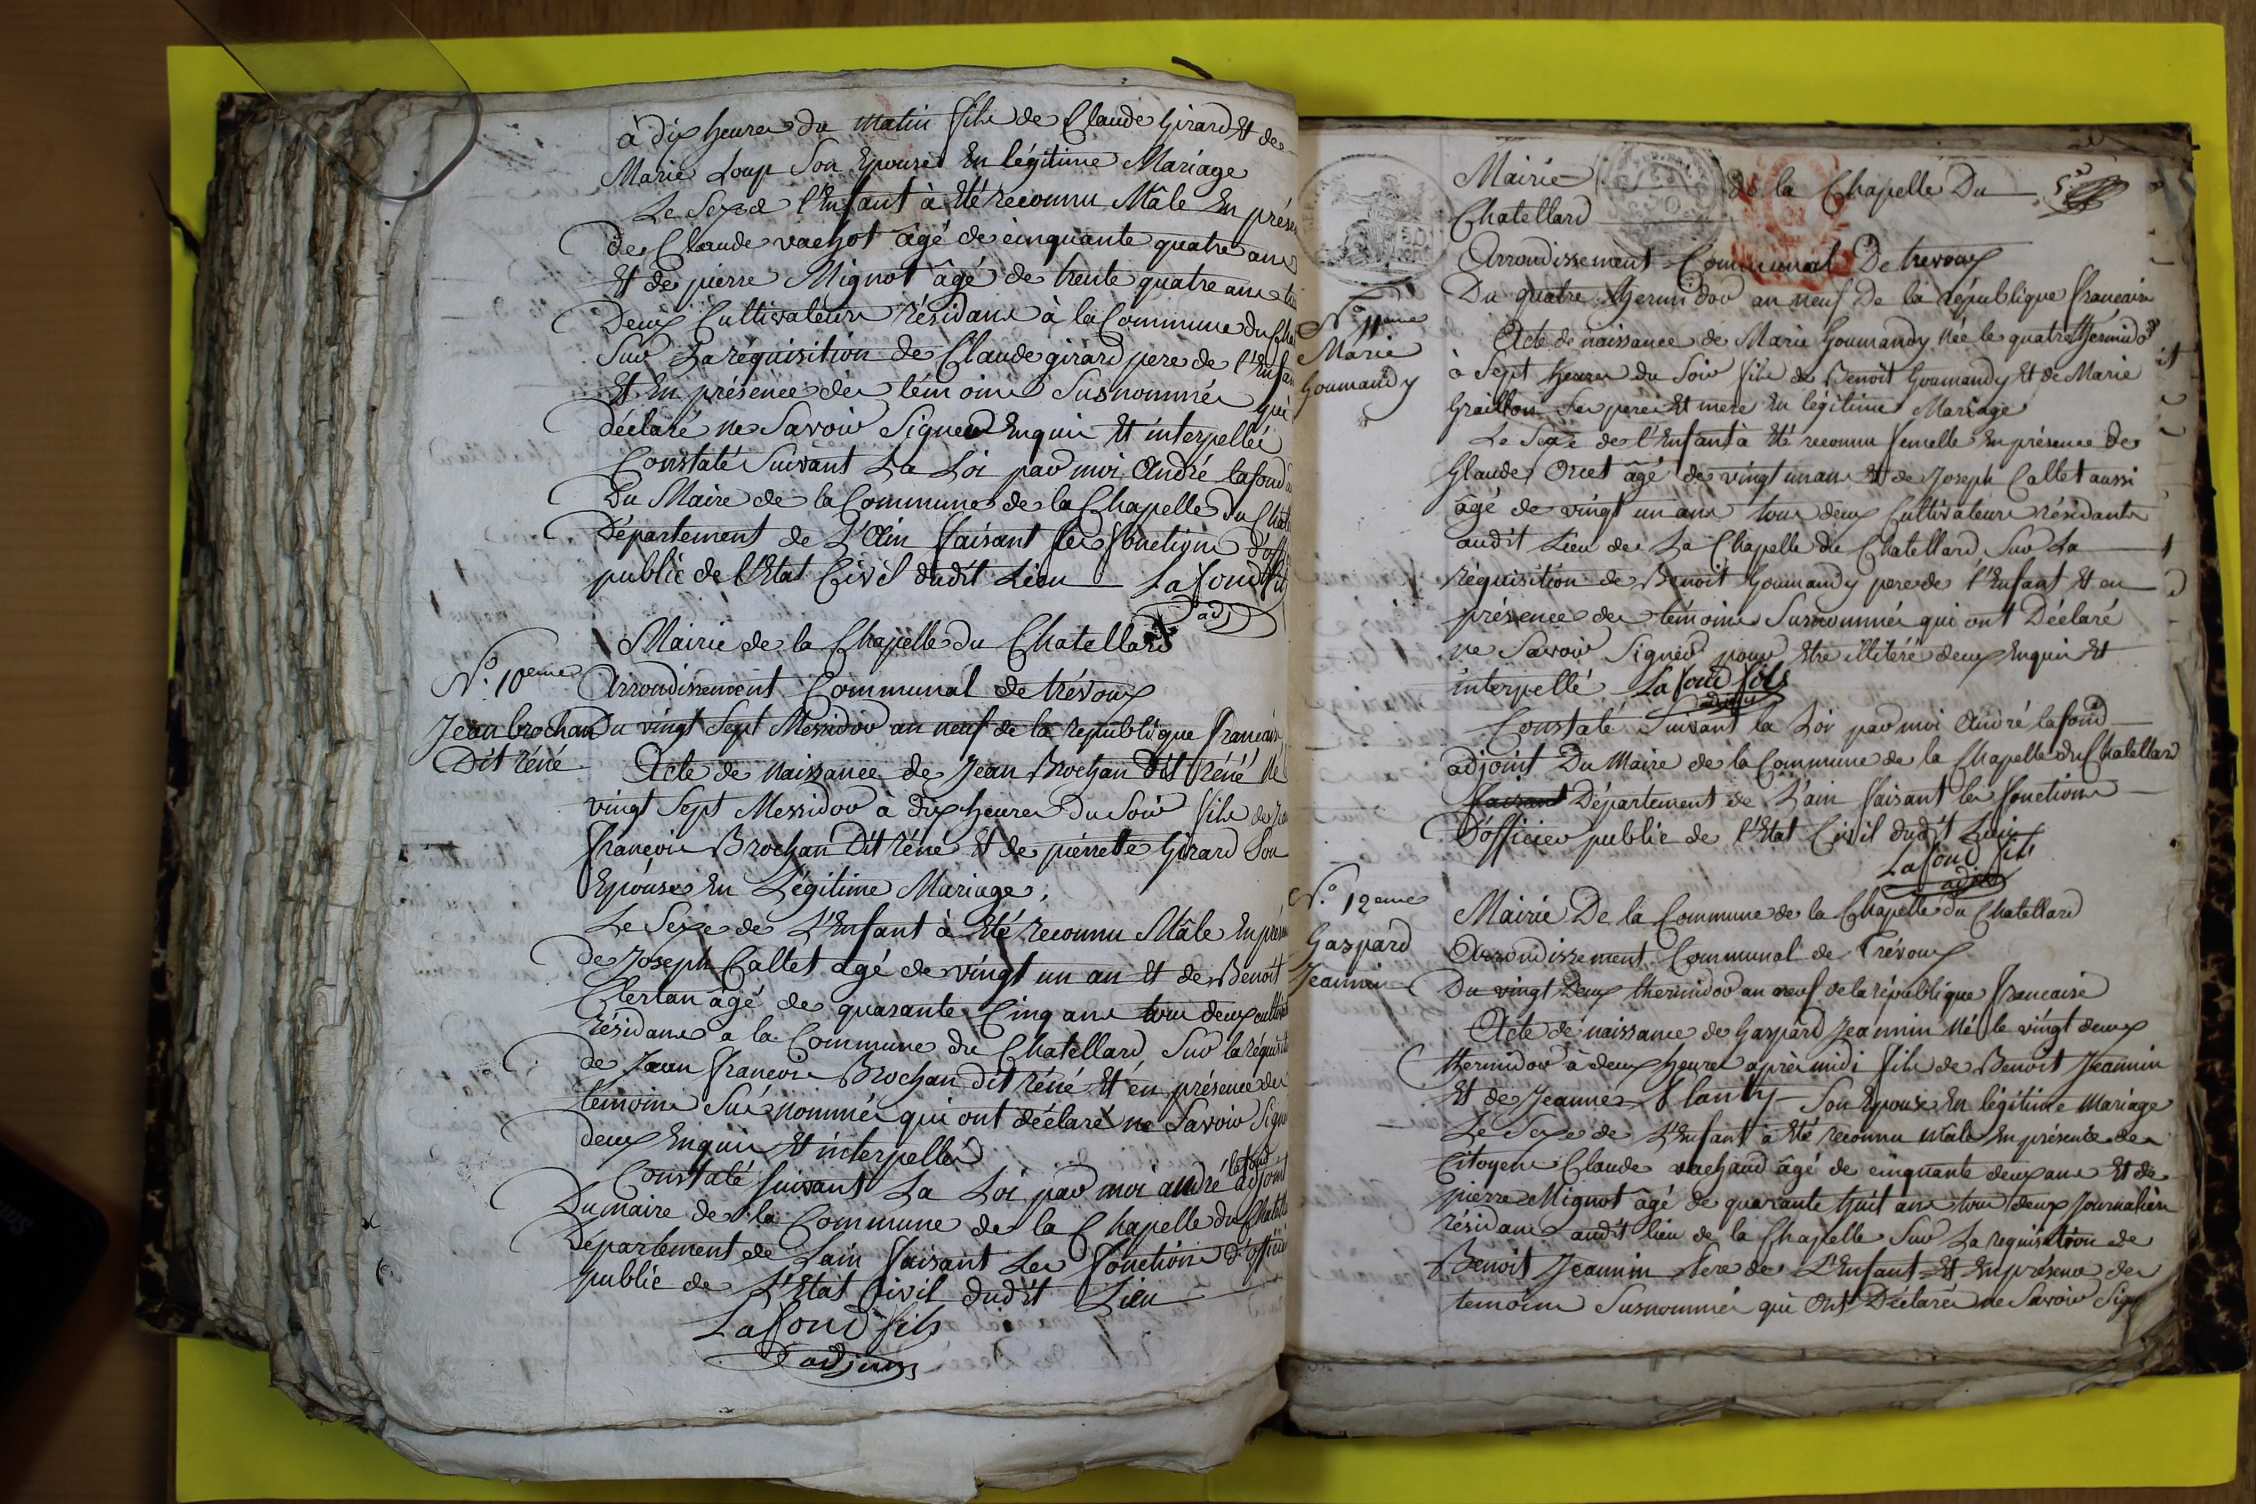 à dix heures du matin fils de Claude Girard Et de
Marie Loup Son Epouse En légitime Mariage
Le Sexe de l'Enfant à Eté reconnu Mâle En prése
de Claude vachot âgé de cinquante quatre ans
Et de pierre Mignot âgé de trente quatre ans
Deux Cultivateurs résidans à la Commune du Cha
Sur La réquisition de Claude girard pere de l'Enfan
Et En présence des témoins Susnommés qui
déclaré ne Savoir Signer Enquis Et interpellés
Constaté Suivant La Loi par moi André lafond
Du Maire de la Commune de la Chapelle du Chat
Département de L'Ain faisant les fonctions d'off
public de l'Etat Civil dudit Lieu La fond fils
adj
Mairie de la Chapelle du Chatellard
N.° 10eme Arrondissement Communal de trévoux
Jean brochan Du vingt Sept Messidor an neuf de la republique francais
Dit réné Acte de naissance de Jean Brochan dit réné né
vingt Sept Messidor à dix heures Du Soir fils de
françois Brochan Dit réné Et de pierrette Girard Son
Epouse En Légitime Mariage.
Le Sexe de L'Enfant à Eté reconnu Mâle En prés
de Joseph Callet agé de vingt un an Et de Benoit
Clerlan âgé de quarante Cinq ans tous deux cultiv
résidans a la Commune du Chatellard, Sur la réquisi
de Jean francois Brochan dit réné Et en présence des
temoins Sus nommés qui ont déclaré ne Savoir Signe
deux Enquis Et interpellés
lafond
Constaté Suivant La Loi par moi andré adjoint
Du maire de la Commune de la Chapelle du Chatella
Département de Lain faisant Les fonctions d'offici
public de L'Etat Civil dudit Lieu
La fond fils
adjoint
Mairie de la Chapelle Du
Chatellard
Arrondissement Communal De trevoux
Du quatre thermidor an neuf De la république francaise
N.° 11eme
Marie
Goumandy
Acte de naissance de Marie Goumandy née le quatre thermidor
à Sept heures du Soir fils de Benoit Goumandy Et de Marie
Graillon Ses pere Et mere En légitime Mariage
Le Sexe de l'Enfant à Eté reconnu femelle En présence De
Glaude Oret âgé de vingt un ans Et de Joseph Callet aussi
âgé de vingt un ans tous deux Cultivateurs résidants
audit Lieu de La Chapelle du Chatellard Sur La
réquisition de Benoit Goumandy pere de l'Enfant Et en
présence des témoins Susnommés qui ont Déclaré
ne Savoir Signer pour Etre illitéré deux Enquis Et
interpellé La fond fils
adjoint
Constaté Suivant la Loi par moi André lafond
adjoint Du Maire de la Commune de la Chapelle du Chatellard
faisant Département de L'ain faisant les fonctions
D'officier public de l'Etat Civil dudit Lieu
La fond fils
adjoint
N.° 12eme
Gaspard
Jeannin
Mairie De la Commune de la Chapelle du Chatellard
Arrondissement Communal de Trévoux
Du vingt Deux thermidor an neuf de la république francaise
Acte de naissance de Gaspard Jeannin Né le vingt deux
thermidor à deux heures après midi fils de Benoit Jeannin
Et de Jeanne Son Epouse En légitime Mariage
Le Sexe de L'Enfant à Eté reconnu Male En présence de
Citoyens Claude vachaud âgé de cinquante deux ans Et de
pierre Mignot âgé de quarante huit ans tous deux Journaliers
résidans audit lieu de la Chapelle Sur La requisition de
Benoit Jeannin Pere de L'Enfant Et En présence des
temoins Susnommés qui Ont Déclarés ne Savoir Sign